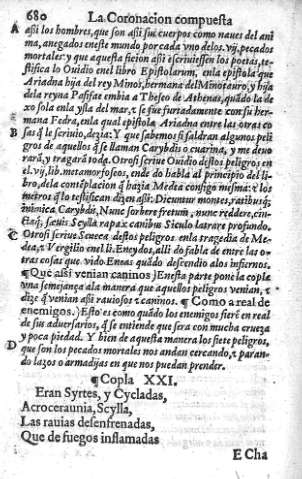 680 La Coronacion compuesta
A assi los hombres, que son assi sus cuerpos como naues del ani
ma, anegados eneste mundo por cada vno delos. vij. pecados
mortales: y que aquesta ficion assi escriuiessen los poetas, te-
stifica lo Ouidio enel libro Epistolarum, enla epistola que
Ariadna hija del rey Minos, hermana del Minotauro, y hija
dela reyna Pasifae embia a Theseo de Athenas, quãdo la de
xo sola enla ysla del mar, τ se fue furtadamente con su her-
mana Fedra, enla qual epistola Ariadna entre las otras co
B sas q̃ le scriuio, dezia: Y que sabemos si saldran algunos peli
gros de aquellos q̃ se llaman Carybdis o cuarina, y me deuo
rarã, y tragarã toda. Otrosi scriue Ouidio destos peligros en
el. vij. lib. metamorfoseos, ende do habla al principio del li-
bro, dela contẽplacion q̃ hazia Medea consigo mesma: τ los
metros q̃ lo testifican dizen assi: Dicuntur montes, ratibusq́;
inimica Carybdis, Nunc sorbere fretum, nunc reddere, cin-
ctaq́; sæuis Scylla rapax canibus Siculo latrare profundo.
C Otrosi scriue Seneca destos peligros enla tragedia de Me-
dea, τ Vergilio enel li. Eneydos, alli do fabla de entre las o-
tras cosas que vido Eneas quãdo descendio alos infiernos.
¶ Que assi venian caninos) Enesta parte pone la copla
vna semejança ala manera que aquellos peligros venian, τ
dize q̃ venian assi rauiosos τ caninos. ¶ Como a real de
enemigos.) Esto es como quãdo los enemigos fierẽ en real
de sus aduersarios, q̃ se entiende que sera con mucha crueza
y poca piedad. Y bien de aquesta manera los siete peligros,
D que son los pecados mortales nos andan cercando, τ paran-
do lazos o armadijas en que nos puedan prender.
¶ Copla XXI.
Eran Syrtes, y Cycladas,
Acroceraunia, Scylla,
Las rauias desenfrenadas,
Que de fuegos inflamadas
E Cha